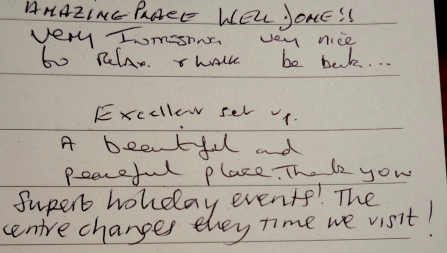 AMAZING PLACE WELL DONE!!
very Interesting very nice
to Relax. & WALK be back...
Excellent set up.
A beautiful and
peaceful place. Thank you
Superb holiday events! The
centre changes every time we visit!